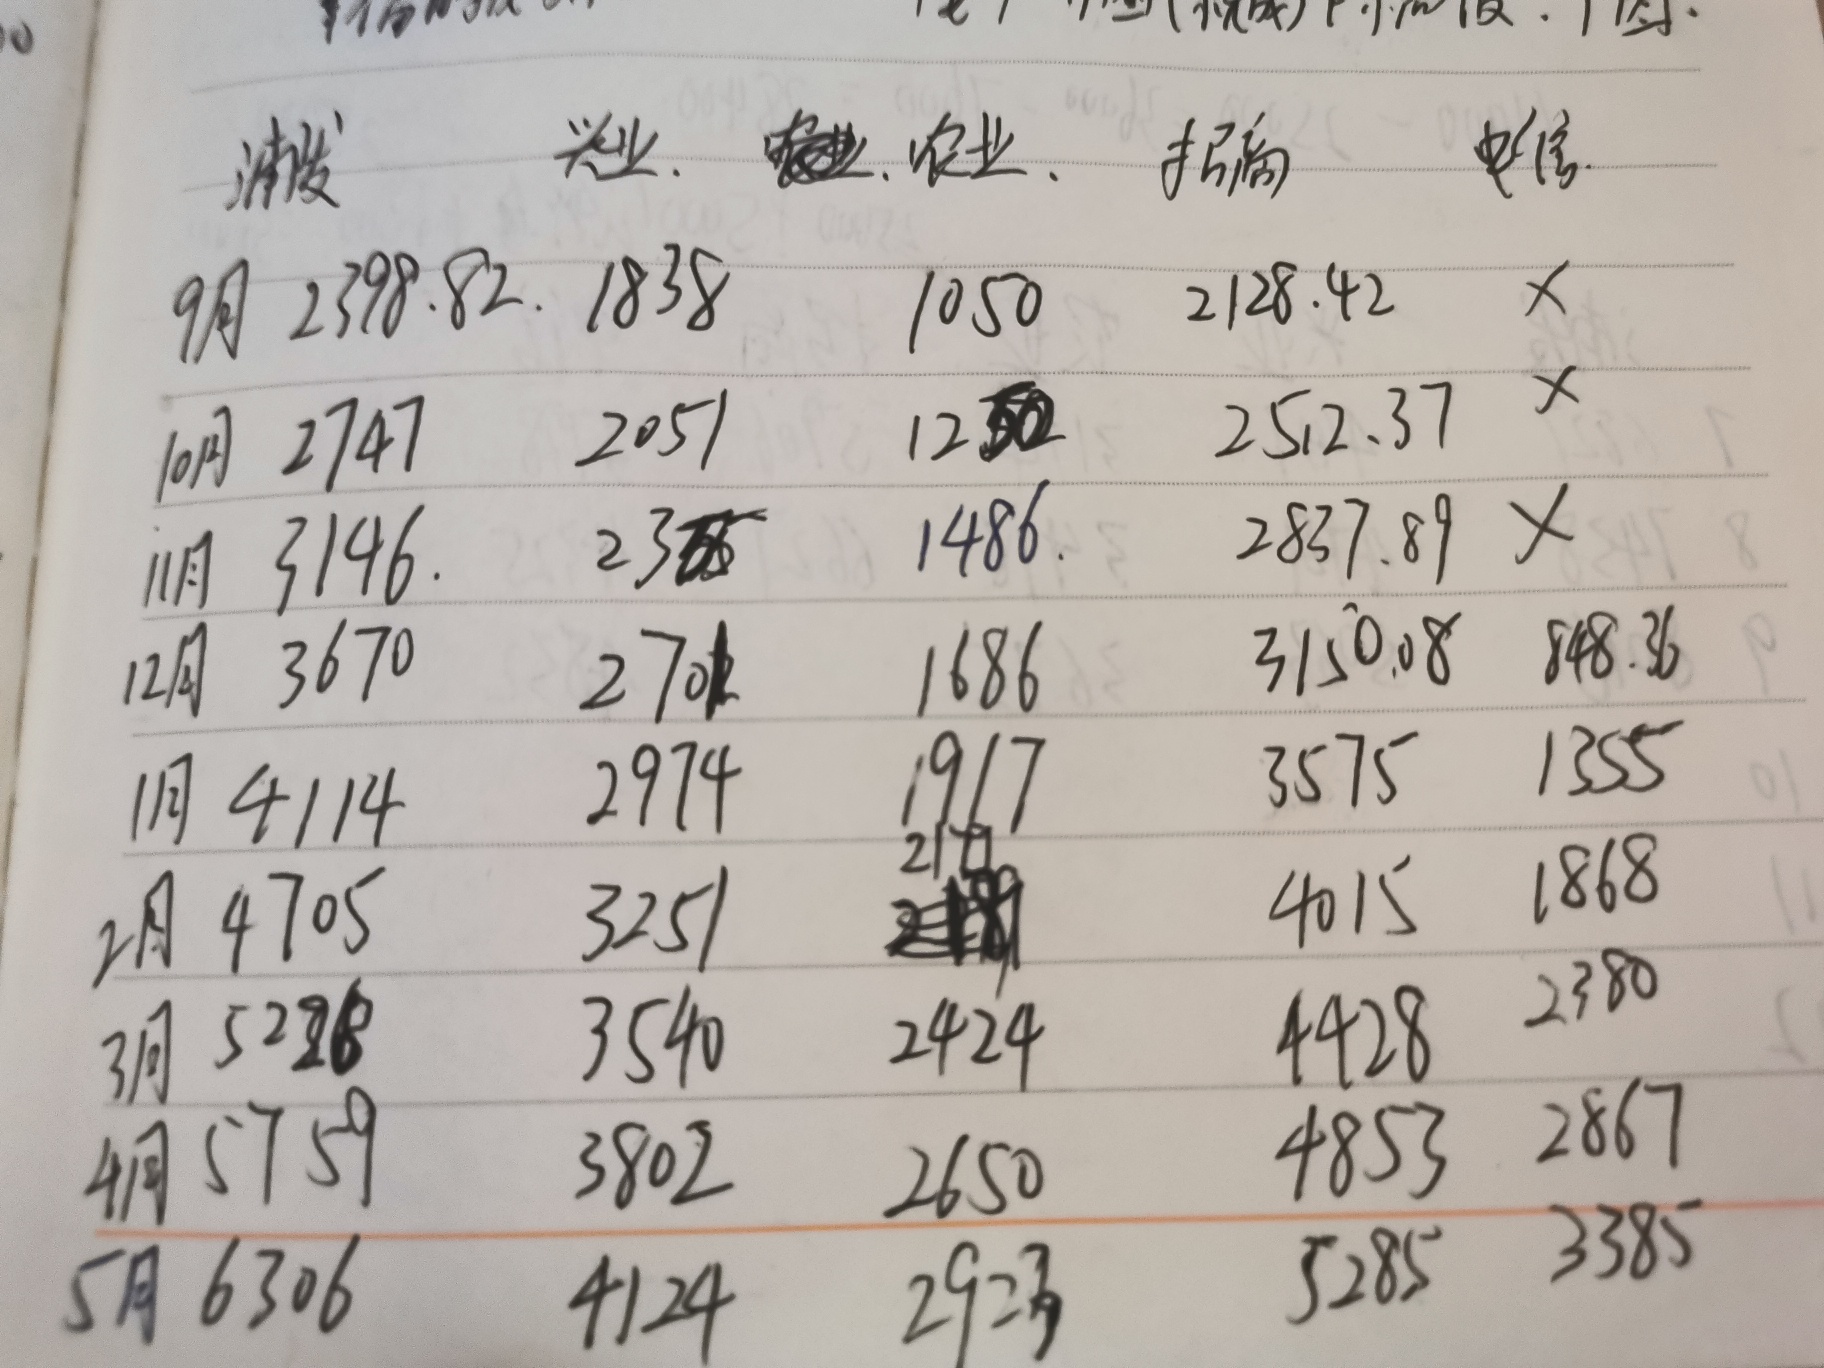 浦发 兴业. 农业. 招商 电信.
9月 2398.82. 1838 1050 2128.42 ×
10月 2747 2051 2512.37 ×
11月 3146. 1486. 2837.89 ×
12月 3670 1686 3150.08 848.36
1月 4114 2974 1917 3575 1355
2月 4705 3251 4015 1868
3月 3540 2424 4428 2380
4月 5759 3802 2650 4853 2867
5月 6306 4124 2923 5285 3385